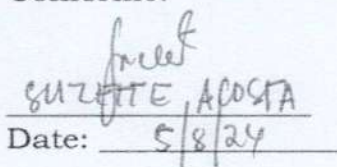 SUZETTE ACOSTA
Date: 5/8/24